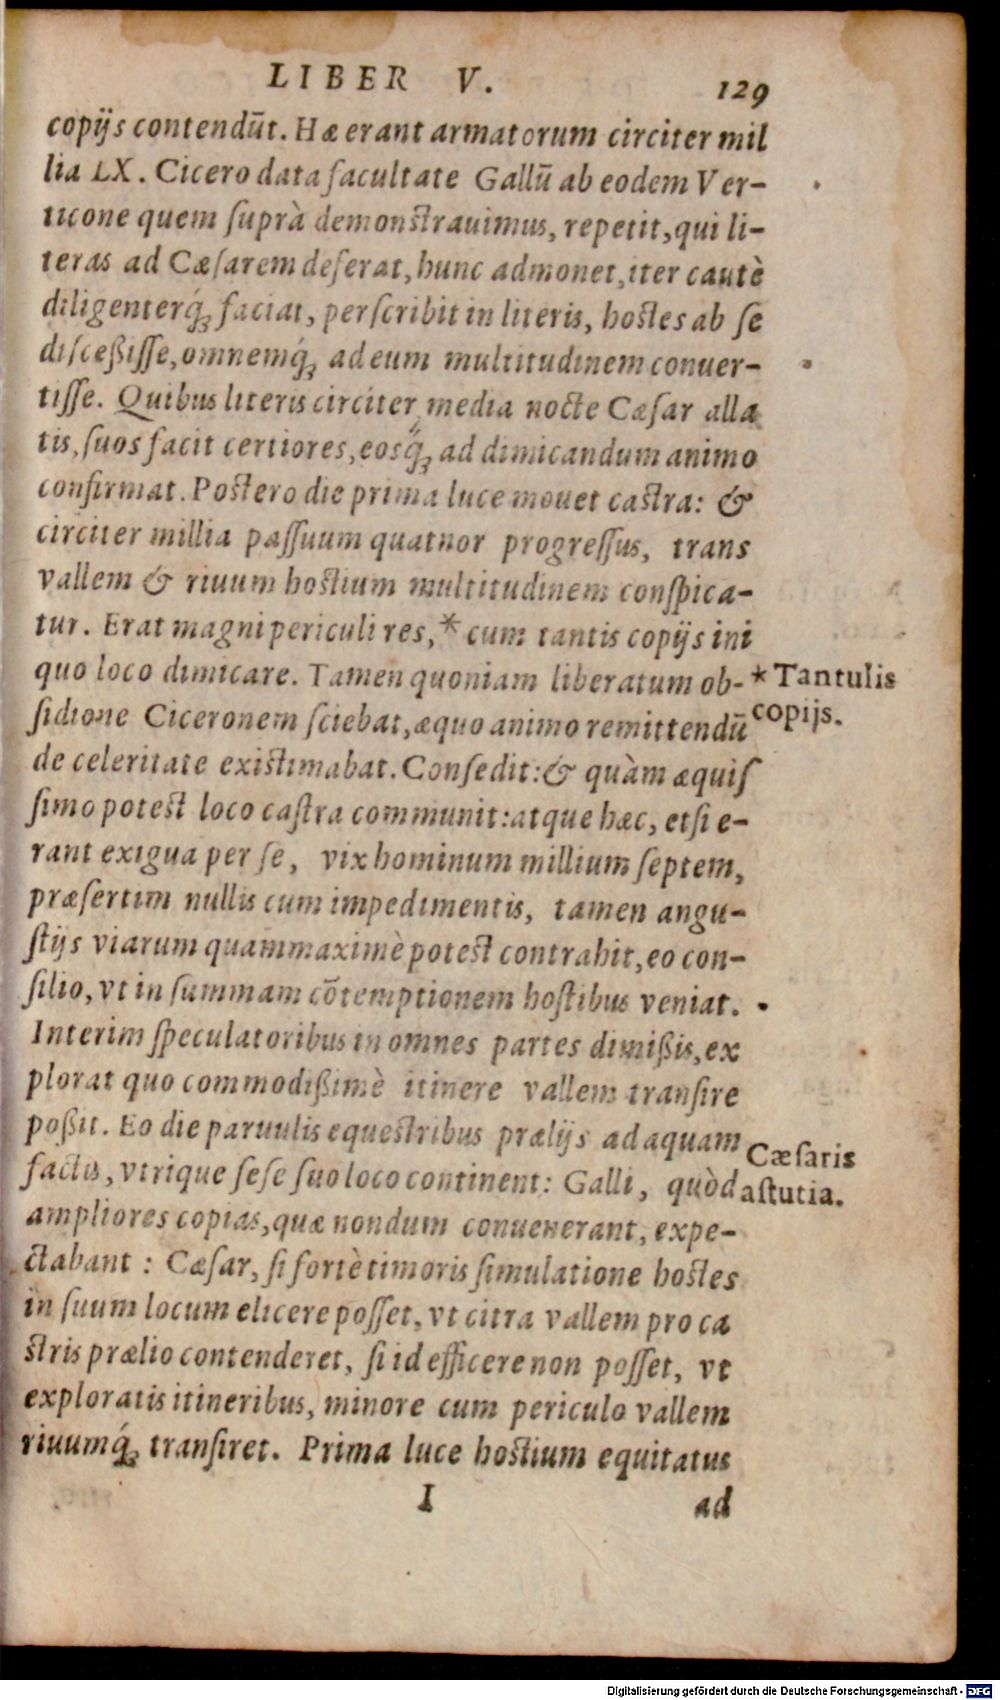 LIBER V. 129
copijs contendūt. Hæ erant armatorum circiter mil
lia LX. Cicero data facultate Gallū ab eodem Ver-
ticone quem suprà demonstrauimus, repetit, qui li-
teras ad Cæsarem deferat, hunc admonet, iter cautè
diligenterq́; faciat, perscribit in literis, hostes ab se
disceßisse, omnemq́; ad eum multitudinem conuer-
tisse. Quibus literis circiter media nocte Cæsar alla
tis, suos facit certiores, eosq́; ad dimicandum animo
confirmat. Postero die prima luce mouet castra: &
circiter millia passuum quatuor progressus, trans
vallem & riuum hostium multitudinem conspica-
tur. Erat magni periculi res, * cum tantis copijs ini
quo loco dimicare. Tamen quoniam liberatum ob-
* Tantulis
copijs.
sidione Ciceronem sciebat, æquo animo remittendū
de celeritate existimabat. Consedit: & quàm æquis
simo potest loco castra communit: atque hæc, etsi e-
rant exigua per se, vix hominum millium septem,
præsertim nullis cum impedimentis, tamen angu-
stijs viarum quammaximè potest contrahit, eo con-
silio, vt in summam cōtemptionem hostibus veniat.
Interim speculatoribus in omnes partes dimißis, ex
plorat quo commodißimè itinere vallem transire
poßit. Eo die paruulis equestribus prælijs ad aquam
factis, vtrique sese suo loco continent: Galli, quòd
Cæsaris
astutia.
ampliores copias, quæ nondum conuenerant, expe-
ctabant: Cæsar, si fortè timoris simulatione hostes
in suum locum elicere posset, vt citra vallem pro ca
stris prælio contenderet, si id efficere non posset, vt
exploratis itineribus, minore cum periculo vallem
riuumq́; transiret. Prima luce hostium equitatus
I ad
Digitalisierung gefördert durch die Deutsche Forschungsgemeinschaft - DFG